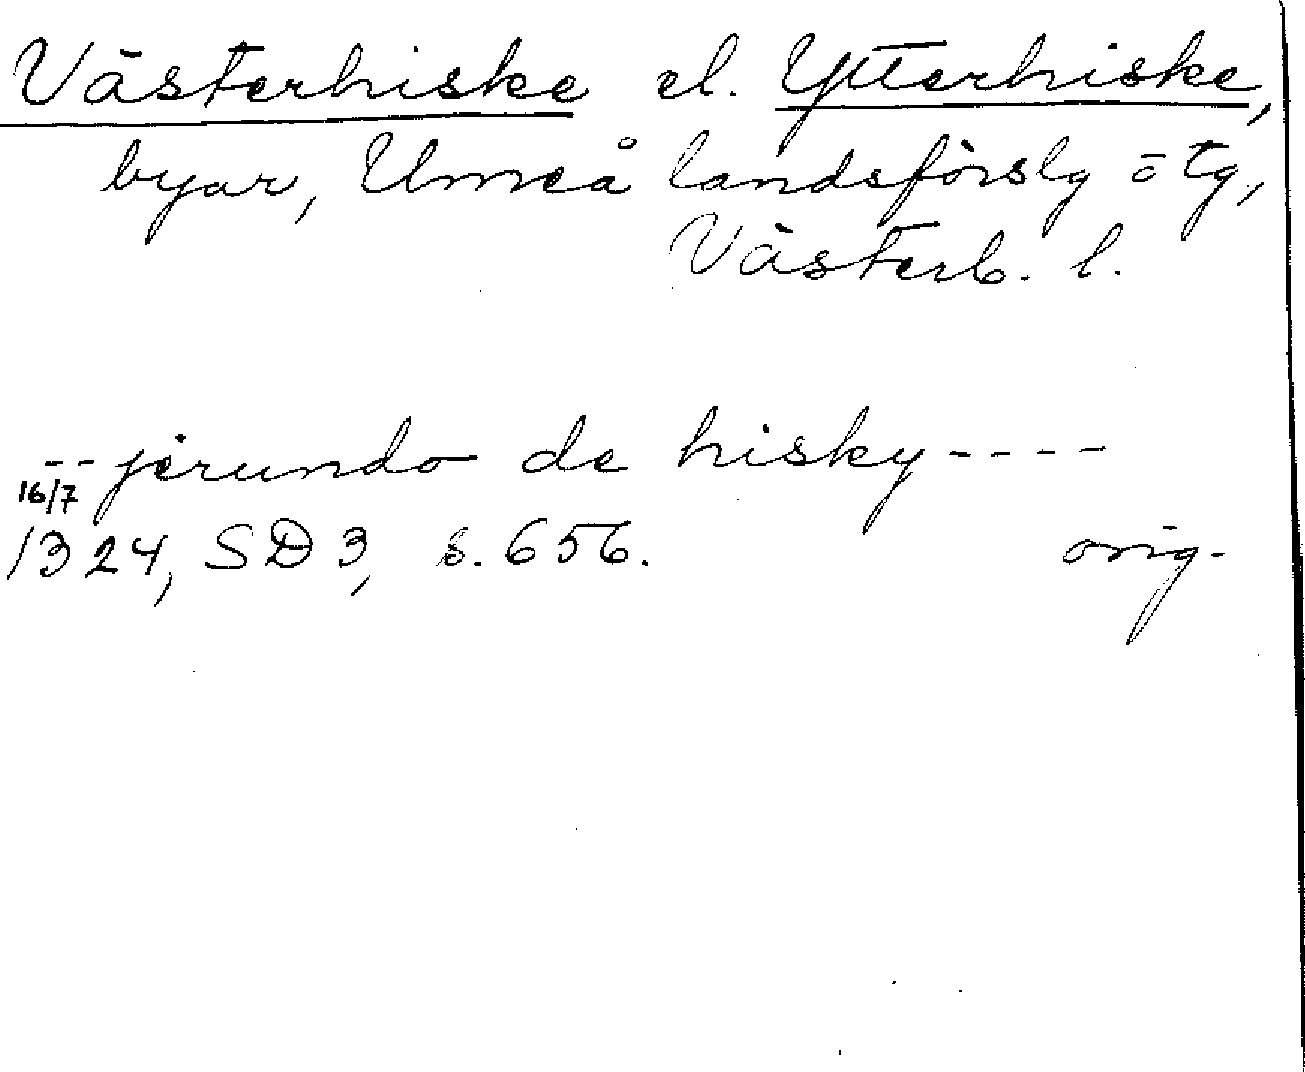 Västerhiske el. Ytterhiske,
byar, Umeå landsförslg o tg,
Västerb. l.
-- jerundo de hisky ----
16/7
1324, SD 3, s. 656. orig.